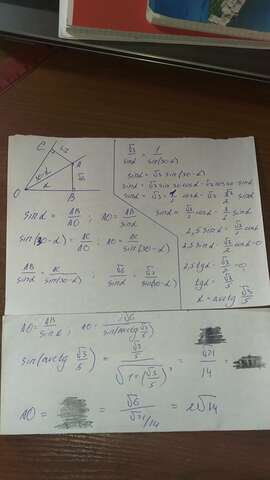 C
√2
A
30-α
α
√6
O
B
sin α = AB/AO ; AO = AB/sin α
sin(30-α) = AC/AO ; AO = AC/sin(30-α)
AB/sin α = AC/sin(30-α) ; √6/sin α = √2/sin(30-α)
√3/sin α = 1/sin(30-α)
sin α = √3 sin(30-α)
sin α = √3 sin 30 cos α - √3 cos 30 sin α
sin α = √3 · 1/2 cos α - √3 · √3/2 sin α
sin α = √3/2 cos α - 3/2 sin α
2,5 sin α = √3/2 cos α
2,5 sin α - √3/2 cos α = 0
2,5 tg α - √3/2 = 0
tg α = √3/5
α = arctg √3/5
AO = AB/sin α ; AO = √6/sin(arctg √3/5)
sin(arctg √3/5) = √3/5 / √(1+(√3/5)²) = √21/14 =
AO = = √6 / √21/14 = 2√14